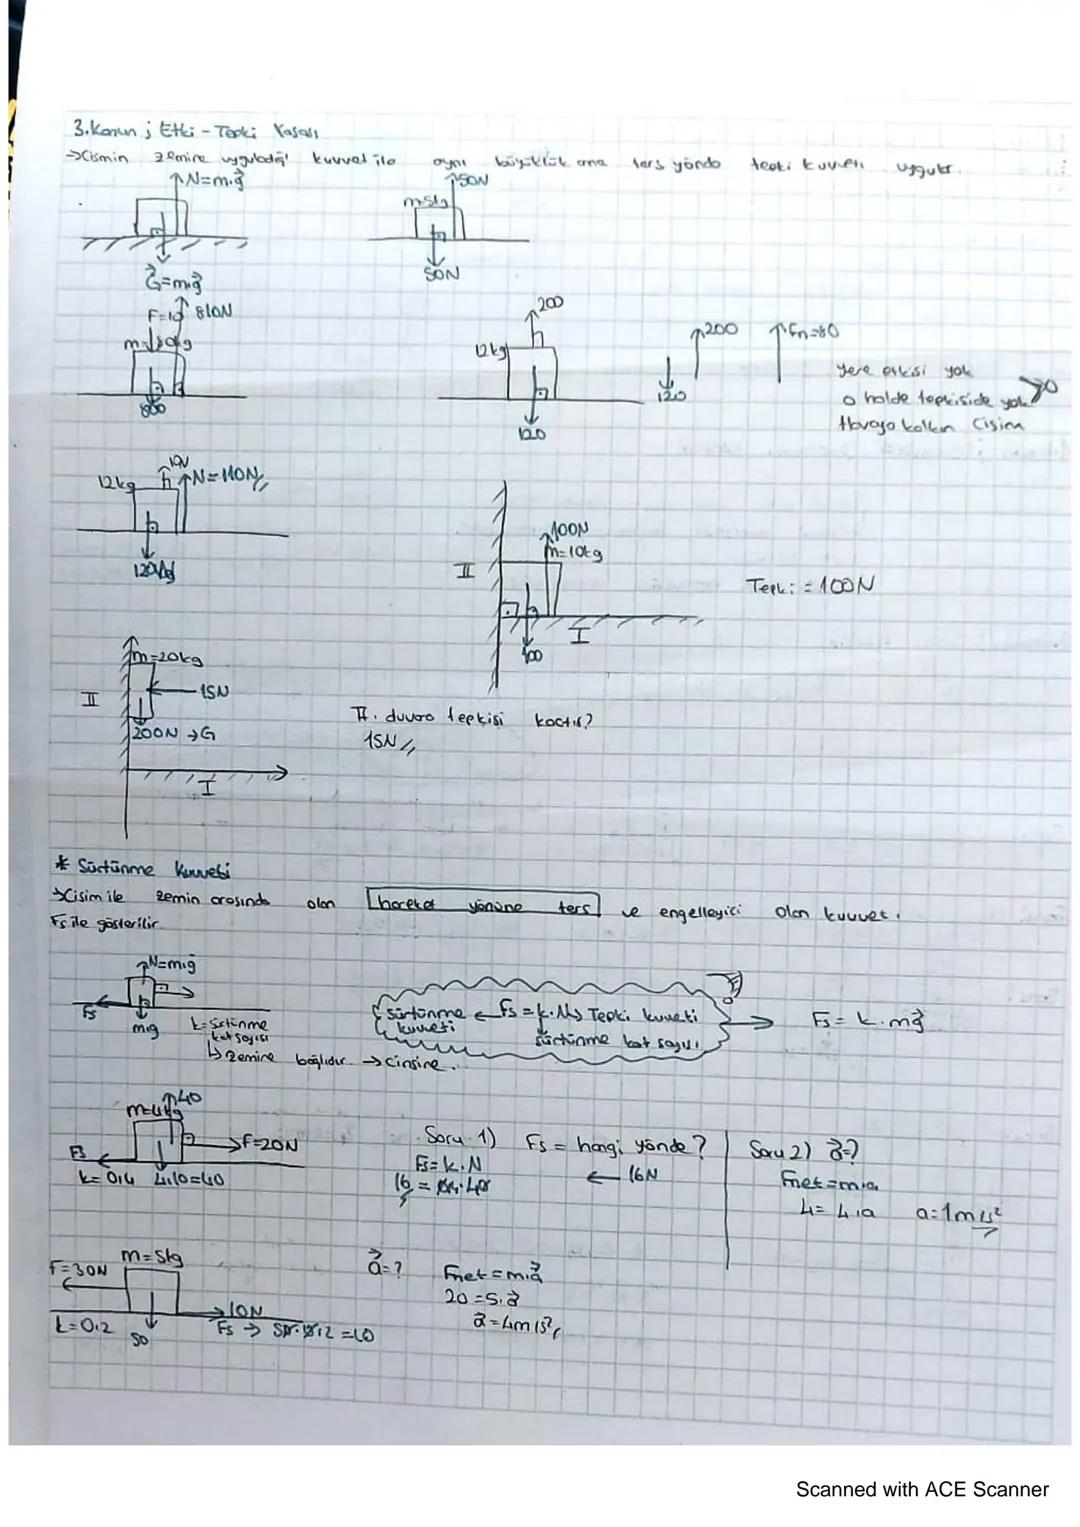 3.Kanun ; Etki - Tepki Yasası
→Cismin zemine uyguladığı kuvvet ile aynı büyüklük ama ters yönde tepki kuvveti uygular.
N=m.g
50N
m=5kg
G=m.g
50N
F=10 810N
m=80kg
800
200
12kg
120
200
120
Fn=80
yere etkisi yok
o halde tepkiside yok
Havaya kalkan cisim
10N
12kg
N=110N
120N
100N
m=10kg
II
I
100
Tepki = 100N
m=20kg
15N
II
200N →G
I
II. duvara tepkisi kaçtır?
15N
* Sürtünme Kuvveti
→Cisim ile zemin arasında olan hareket yönüne ters ve engelleyici olan kuvvet.
Fs ile gösterilir.
N=m.g
Fs
m.g
k=Sürtünme
katsayısı
↳ zemine bağlıdır → cinsine.
sürtünme ← Fs = k.N → Tepki kuvveti
kuvveti
sürtünme kat sayısı
Fs = k.mg
40
m=4kg
Fs
F=20N
k=0,4 4.10=40
Soru 1) Fs = hangi yönde?
Fs=k.N
← 16N
16 = 0,4.40
Soru 2) a=?
Fnet=m.a
4=4.a a=1m/s²
F=30N
m=5kg
10N
k=0,2
50
a=?
Fnet=m.a
20=5.a
a=4m/s²
Scanned with ACE Scanner